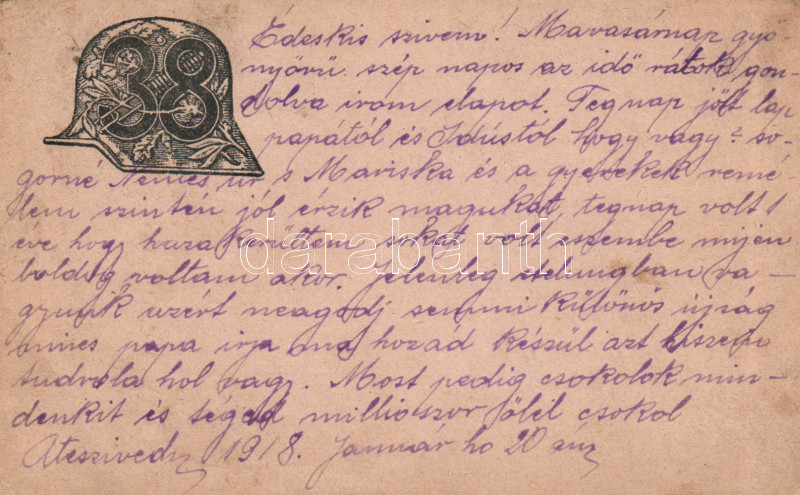 38
Édeskis szivem! Mavasárnap gyö-
nyörü szép napos az idő rátok gon-
dolva irom elapot. Tegnap jött lap
papától és Idústól hogy vagy? so-
gorné Nemes úr s Mariska és a gyerekek remé-
lem szintén jól érzik magukat, tegnap volt 1
éve hogy haza kerültem sokat volt eszembe mijen
boldog voltam akor. Jelenleg vagy-
gyunk azért neagodj semmi különös újság
nincs papa irja ma hozád készül azt hiszem
tudvala hol vagy. Most pedig csokolok min-
denkit és téged milliószor ölel csokol
Ateszived 1918. Január hó 20 án
darabanth